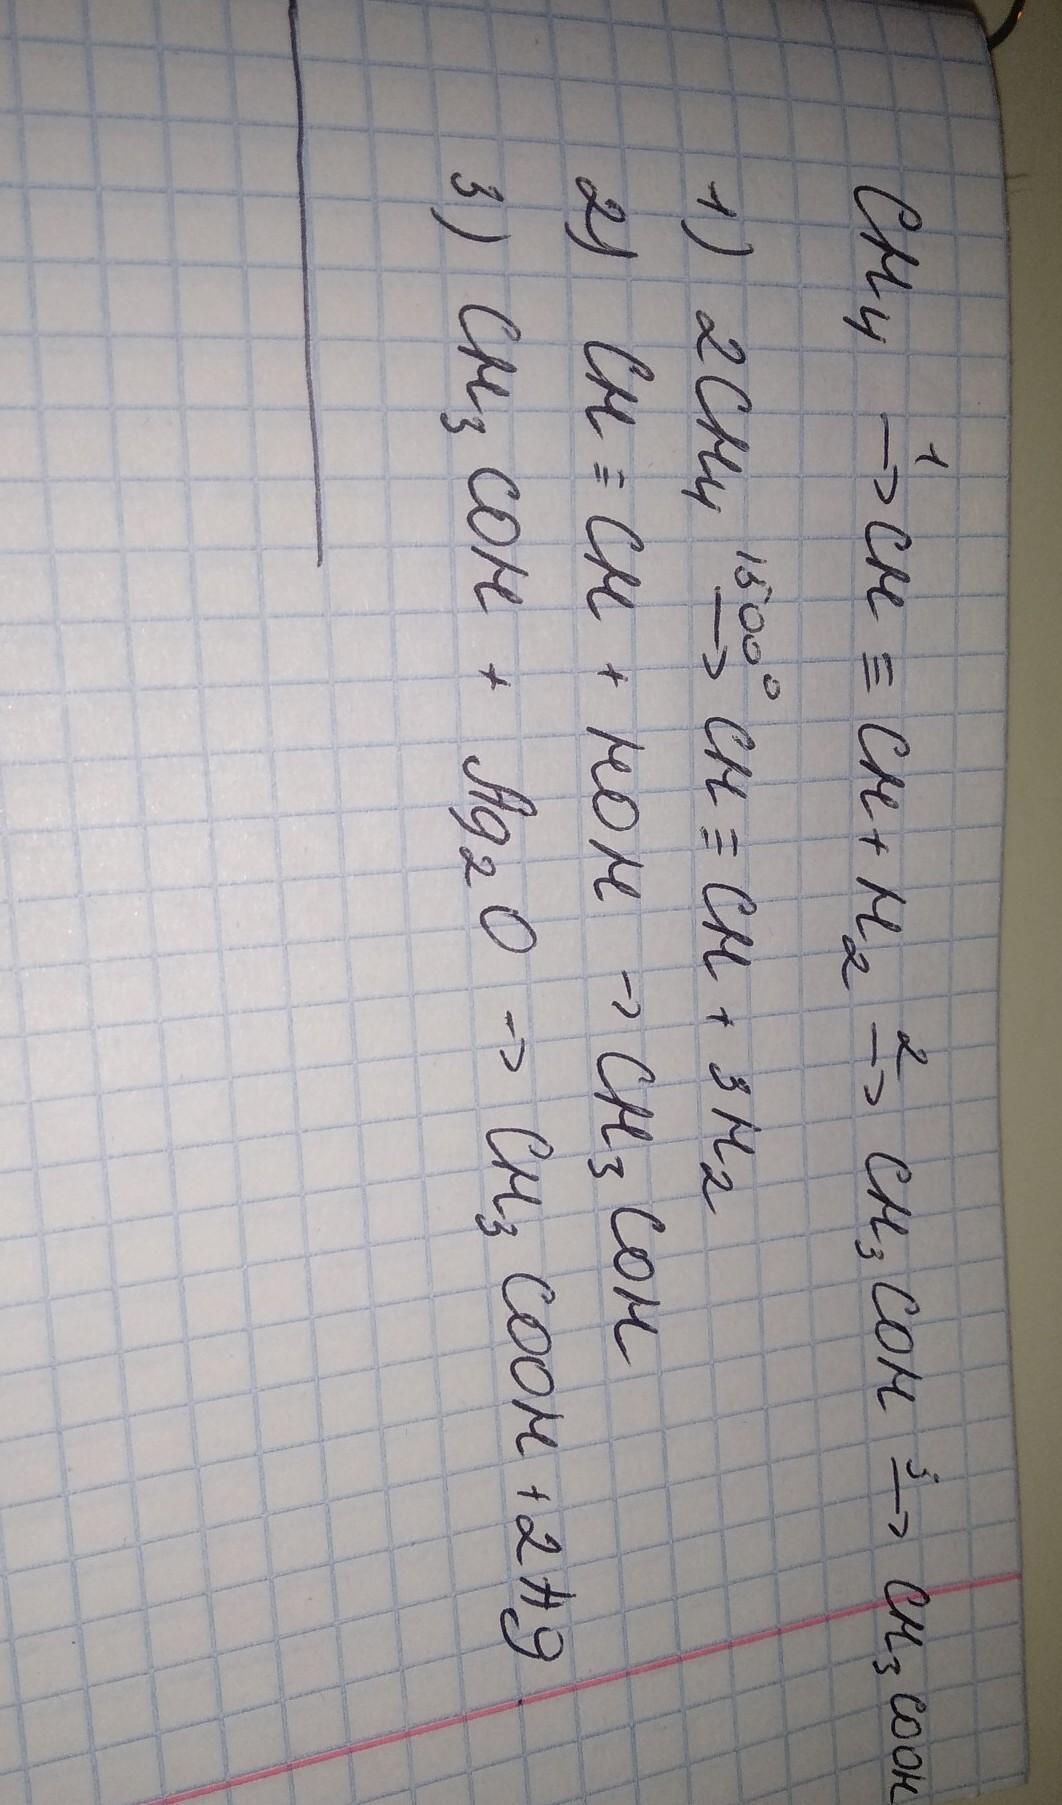 CH4 1→ CH ≡ CH + H2 2→ CH3COH 3→ CH3COOH
1) 2CH4 1500° → CH ≡ CH + 3H2
2) CH ≡ CH + HOH → CH3COH
3) CH3COH + Ag2O → CH3COOH + 2Ag